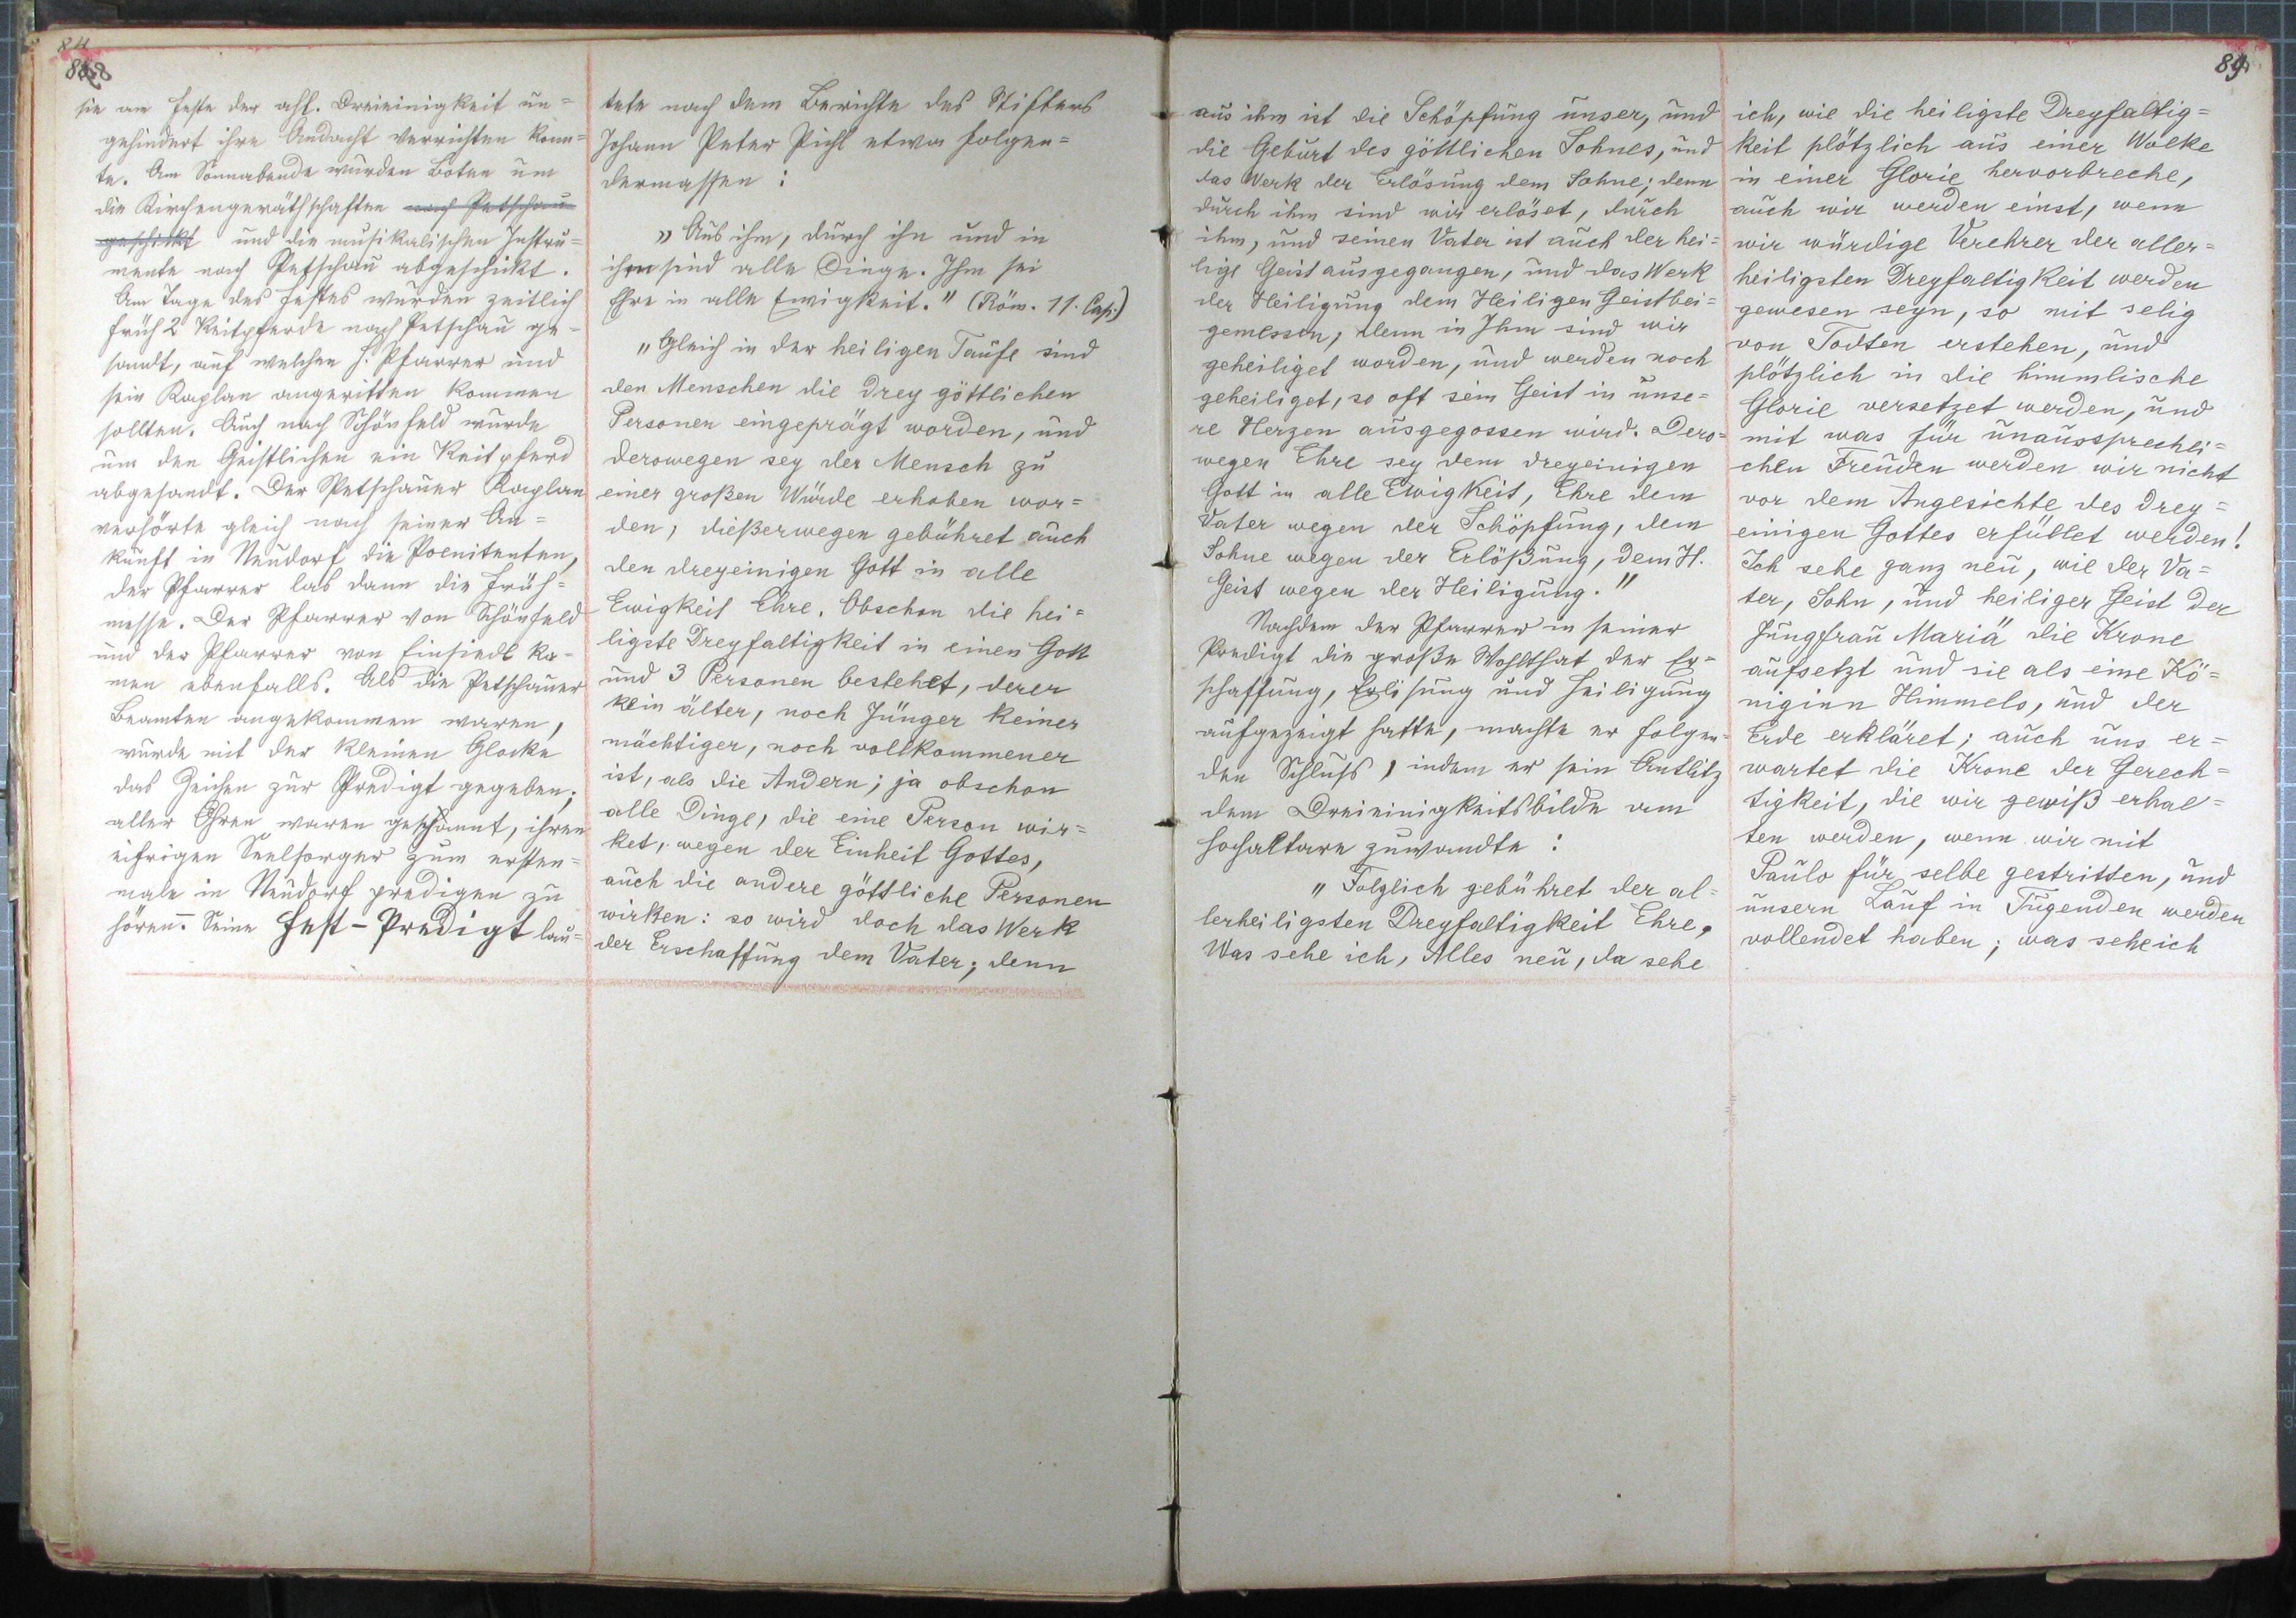 84
88
sie am Feste der allh. Dreieinigkeit un=
gehindert ihre Andacht verrichten konn=
te. Am Sonnabende wurden Boten um
die Kirchengeräthschaften nach Petschau
geschickt und die musikalischen Instru=
mente nach Petschau abgeschickt.
Am Tage des Festes wurden zeitlich
früh 2 Reitpferde nach Petschau ge=
sandt, auf welchen H. Pfarrer und
sein Kaplan angeritten kommen
sollten. Auch nach Schönfeld wurde
um den Geistlichen ein Reitpferd
abgesandt. Der Petschauer Kaplan
verhörte gleich nach seiner An=
kunft in Neudorf die Poenitenten,
der Pfarrer las dann die Früh=
messe. Der Pfarrer von Schönfeld
und der Pfarrer von Einsiedl ka=
men ebenfalls. Als die Petschauer
Beamten angekommen waren,
wurde mit der kleinen Glocke
das Zeichen zur Predigt gegeben;
aller Ohren waren gespannt, ihren
eifrigen Seelsorger zum ersten=
male in Neudorf predigen zu
hören. Seine Fest-Predigt lau=
tete nach dem Berichte des Stifters
Johann Peter Pichl etwa folgen=
dermassen:
„Aus ihm, durch ihn und in
ihm sind alle Dinge. Ihm sei
Ehre in alle Ewigkeit." (Röm. 11. Cap.)
„Gleich in der heiligen Taufe sind
den Menschen die drey göttlichen
Personen eingeprägt worden, und
derowegen sey der Mensch zu
einer großen Würde erhoben wor=
den; dießerwegen gebühret auch
den dreyeinigen Gott in alle
Ewigkeit Ehre. Obschon die hei=
ligste Dreyfaltigkeit in einen Gott
und 3 Personen bestehet, derer
kein älter, noch Jünger keiner
mächtiger, noch vollkommener
ist, als die Andern; ja obschon
alle Dinge, die eine Person wir=
ket, wegen der Einheit Gottes,
auch die andere göttliche Personen
wirken: so wird doch das Werk
der Erschaffung dem Vater; denn
89
aus ihm ist die Schöpfung unser, und
die Geburt des göttlichen Sohnes, und
das Werk der Erlösung dem Sohne; denn
durch ihm sind wir erlöset, durch
ihm, und seinen Vater ist auch der hei=
lige Geist ausgegangen, und das Werk
der Heiligung dem Heiligen Geist bei=
gemessen; denn in Ihm sind wir
geheiliget worden, und werden noch
geheiliget, so oft sein Geist in unse=
re Herzen ausgegossen wird. Dero=
wegen Ehre sey dem dreyeinigen
Gott in alle Ewigkeit, Ehre dem
Vater wegen der Schöpfung, dem
Sohne wegen der Erlößung, dem H.
Geist wegen der Heiligung."
Nachdem der Pfarrer in seiner
Predigt die große Wohlthat der Er=
schaffung, Erlösung und Heiligung
aufgezeigt hatte, machte er folgen=
den Schluß, indem er sein Antlitz
dem Dreieinigkeitsbilde am
Hochaltare zuwandte:
„Folglich gebühret der al=
lerheiligsten Dreyfaltigkeit Ehre,
Was sehe ich, Alles neu, da sehe
ich, wie die heiligste Dreyfaltig=
keit plötzlich aus einer Wolke
in einer Glorie hervorbreche,
auch wir werden einst, wenn
wir würdige Verehrer der aller=
heiligsten Dreyfaltigkeit werden
gewesen seyn, so mit selig
von Todten erstehen, und
plötzlich in die himmlische
Glorie versetzet werden, und
mit was für unaussprechli=
chen Freuden werden wir nicht
vor dem Angesichte des drey=
einigen Gottes erfüllet werden!
Ich sehe ganz neu, wie der Va=
ter, Sohn, und heiliger Geist der
Jungfrau Mariä die Krone
aufsetzt und sie als eine Kö=
niginn Himmels, und der
Erde erkläret; auch uns er=
wartet die Krone der Gerech=
tigkeit, die wir gewiß erhal=
ten werden, wenn wir mit
Paulo für selbe gestritten, und
unsern Lauf in Tugenden werden
vollendet haben; was sehe ich